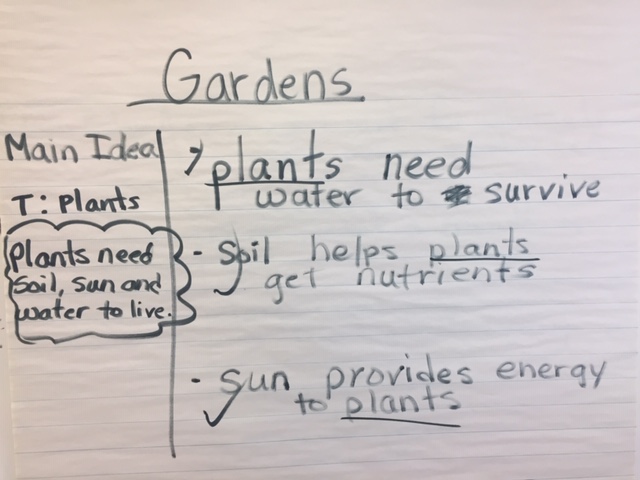 Gardens
Main Idea
T: Plants
Plants need
soil, sun and
water to live.
plants need
water to survive
- Soil helps plants
get nutrients
- Sun provides energy
to plants